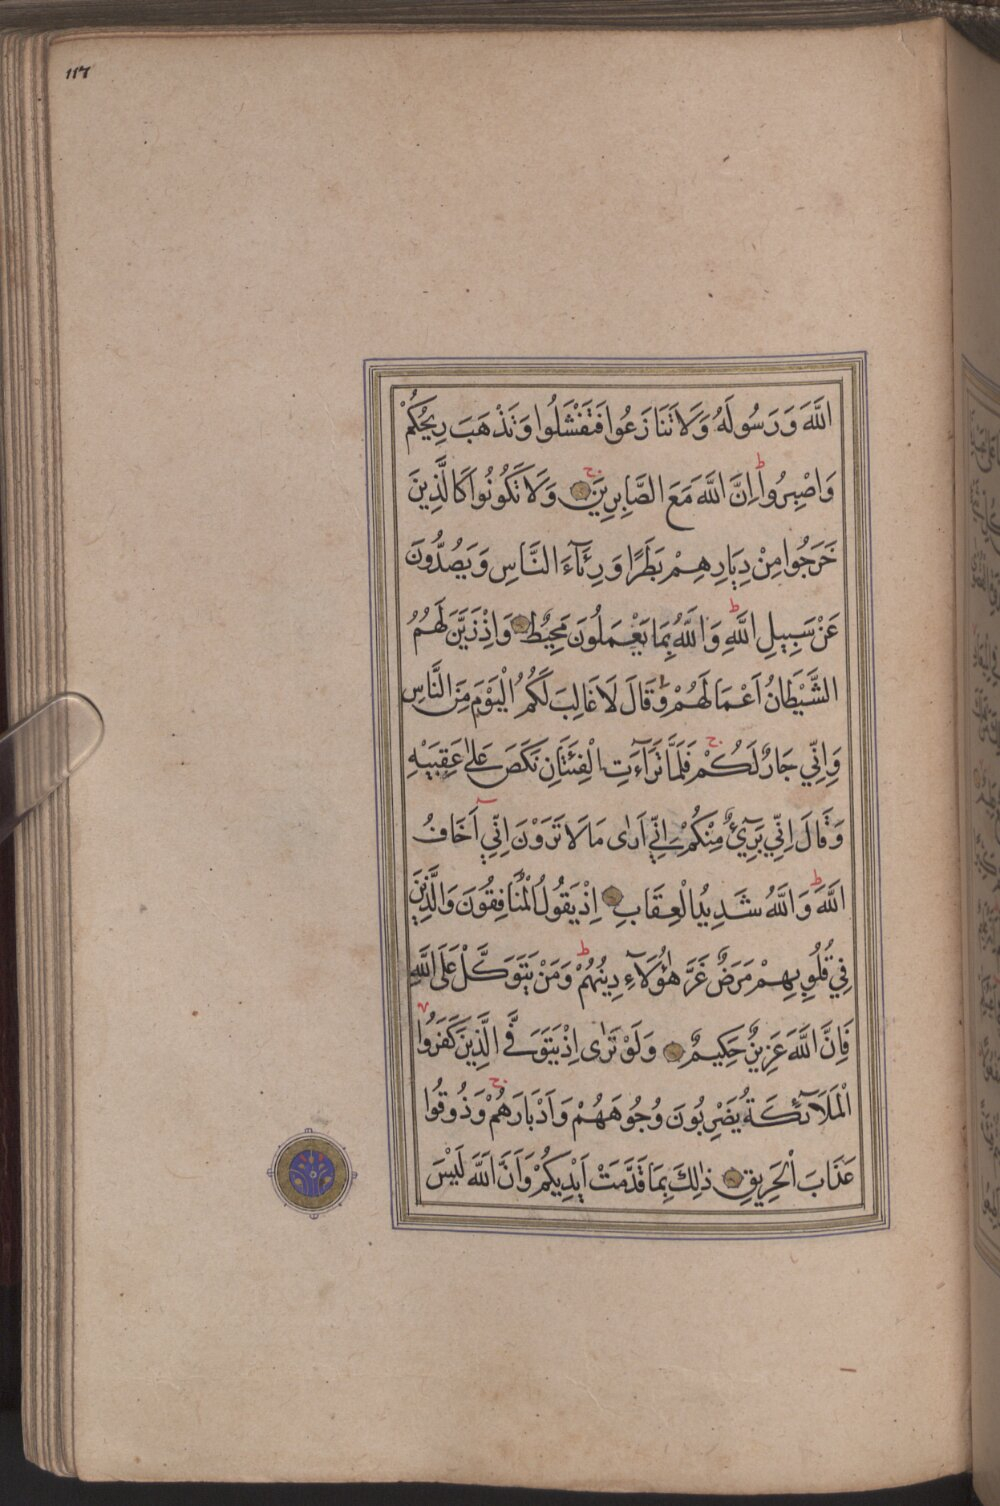 ١١٦
اللَّهَ وَرَسُولَهُ وَلَا تَنَازَعُوا فَتَفْشَلُوا وَتَذْهَبَ رِيحُكُمْ
وَاصْبِرُوا ط اِنَّ اللَّهَ مَعَ الصَّابِرِينَ ج وَلَا تَكُونُوا كَالَّذِينَ
خَرَجُوا مِنْ دِيَارِهِمْ بَطَرًا وَرِئَآءَ النَّاسِ وَيَصُدُّونَ
عَنْ سَبِيلِ اللَّهِ ط وَاللَّهُ بِمَا يَعْمَلُونَ مُحِيطٌ وَاِذْ زَيَّنَ لَهُمُ
الشَّيْطَانُ اَعْمَالَهُمْ وَقَالَ لَا غَالِبَ لَكُمُ الْيَوْمَ مِنَ النَّاسِ
وَاِنِّي جَارٌ لَكُمْ ج فَلَمَّا تَرَآءَتِ الْفِئَتَانِ نَكَصَ عَلٰى عَقِبَيْهِ
وَقَالَ اِنِّي بَرِيٓءٌ مِنْكُمْ اِنِّي اَرٰى مَا لَا تَرَوْنَ اِنِّيٓ اَخَافُ
اللَّهَ ط وَاللَّهُ شَدِيدُ الْعِقَابِ اِذْ يَقُولُ الْمُنَافِقُونَ وَالَّذِينَ
فِي قُلُوبِهِمْ مَرَضٌ غَرَّ هٰؤُلَآءِ دِينُهُمْ ط وَمَنْ يَتَوَكَّلْ عَلَى اللَّهِ
فَاِنَّ اللَّهَ عَزِيزٌ حَكِيمٌ وَلَوْ تَرٰى اِذْ يَتَوَفَّى الَّذِينَ كَفَرُوا
الْمَلَآئِكَةُ يَضْرِبُونَ وُجُوهَهُمْ وَاَدْبَارَهُمْ ج وَذُوقُوا
عَذَابَ الْحَرِيقِ ذٰلِكَ بِمَا قَدَّمَتْ اَيْدِيكُمْ وَاَنَّ اللَّهَ لَيْسَ